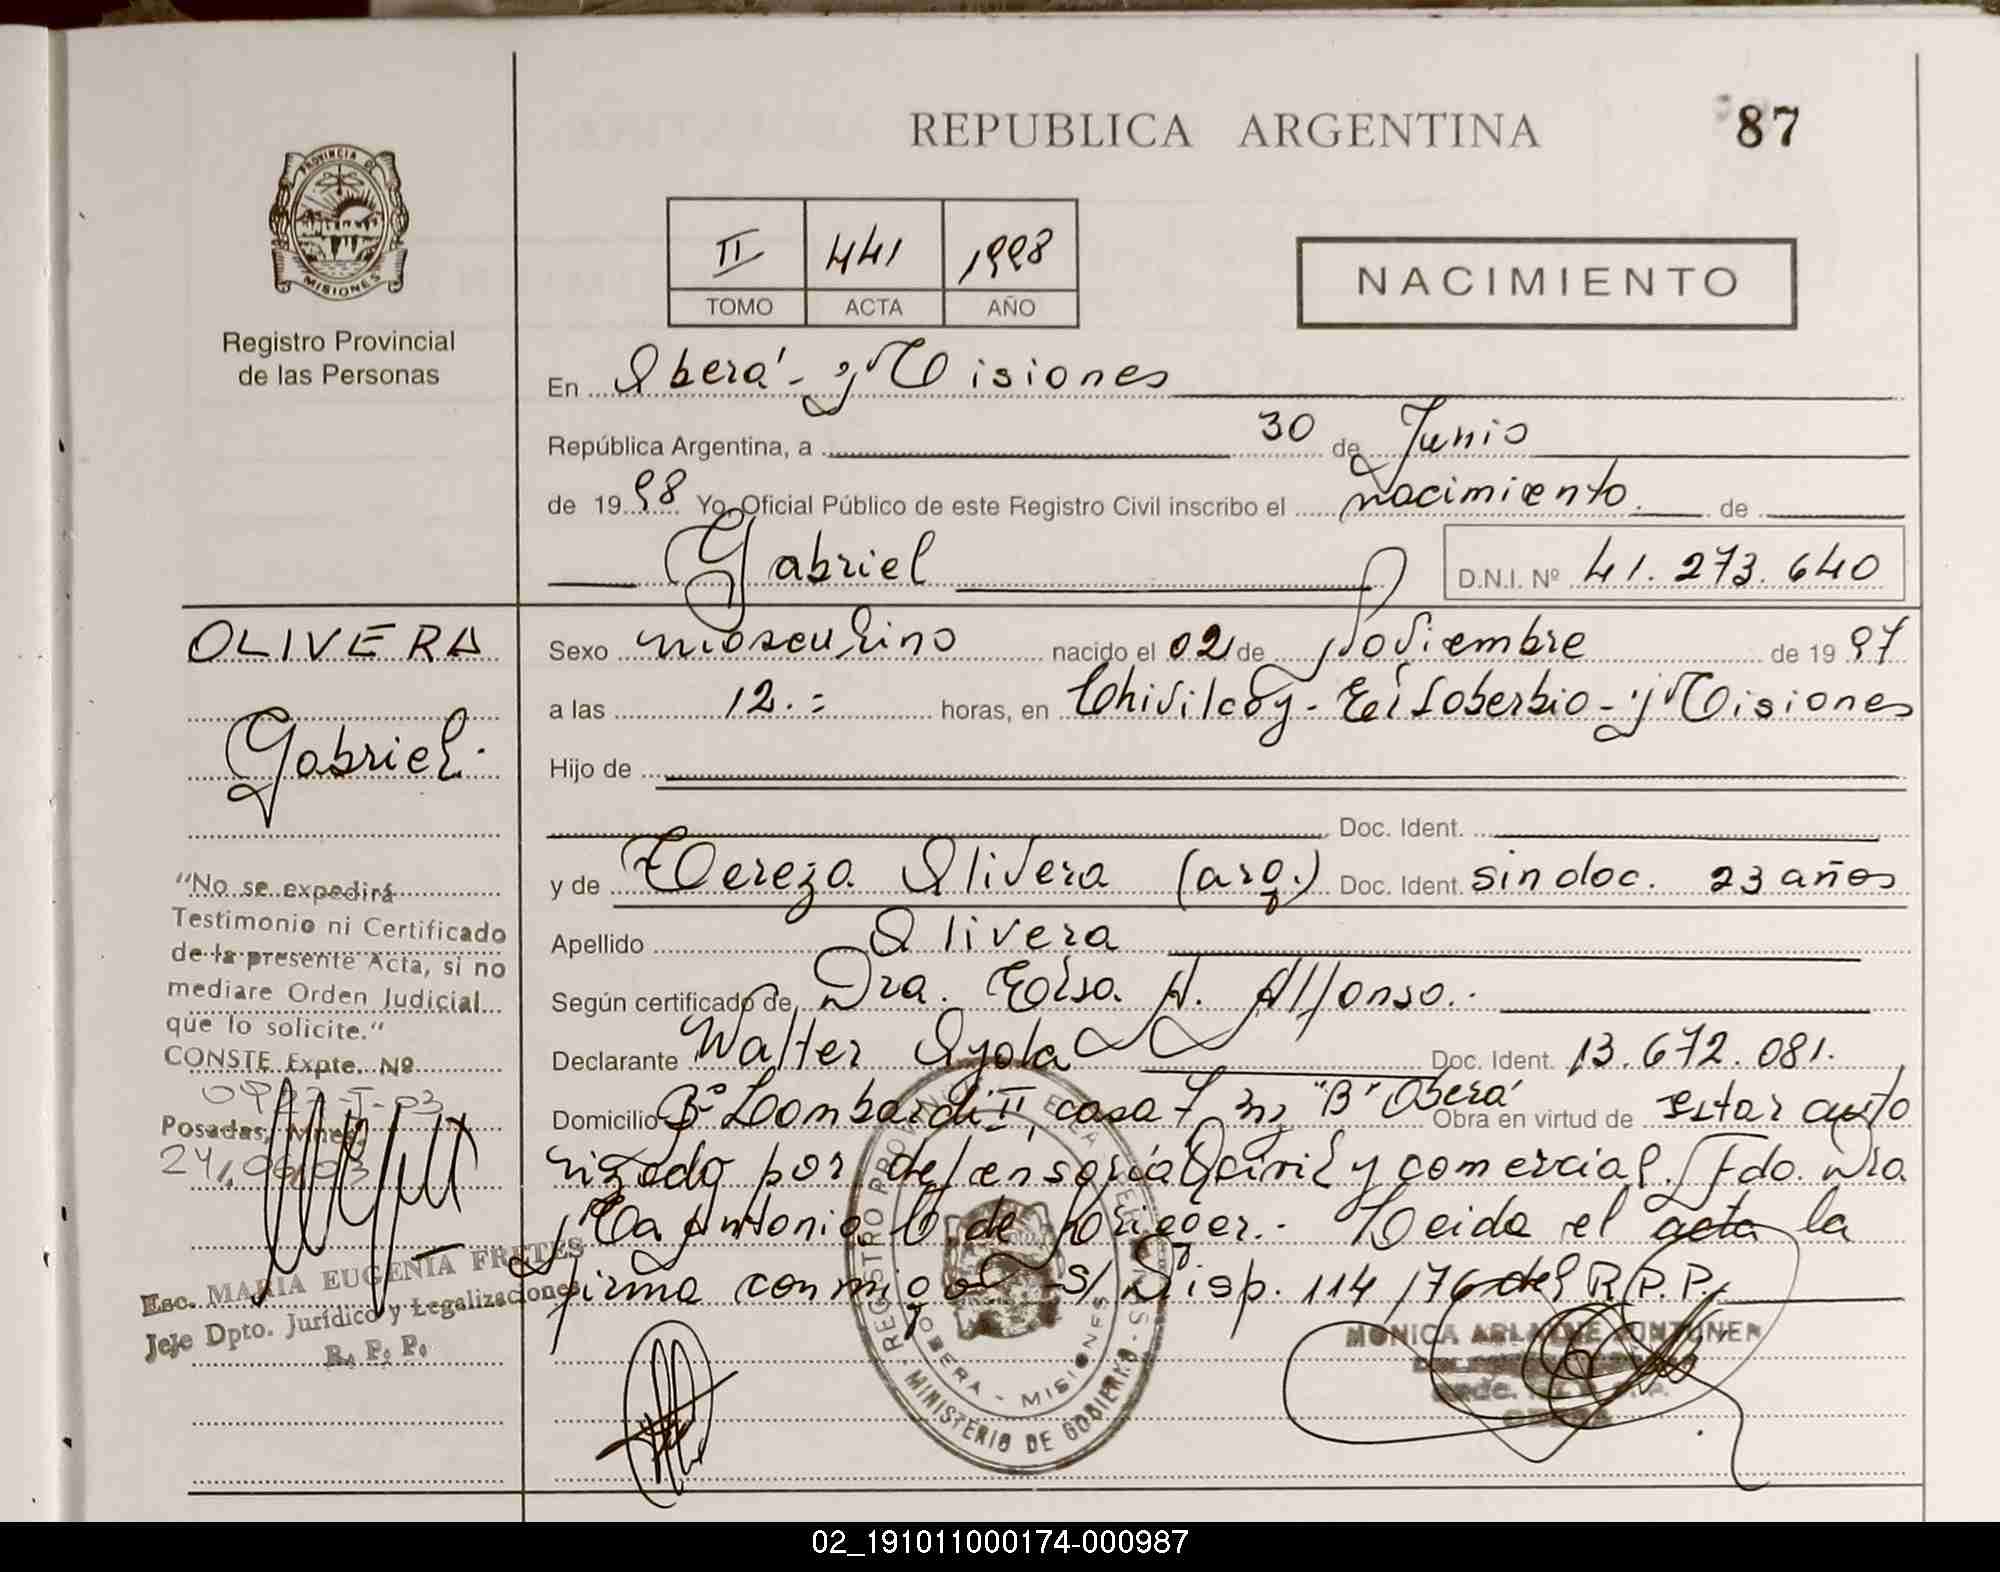 REPUBLICA ARGENTINA
87
PROVINCIA DE
MISIONES
Registro Provincial
de las Personas
II 441 1998
TOMO ACTA AÑO
NACIMIENTO
En Oberá - Misiones
República Argentina, a 30 de Junio
de 1998 Yo, Oficial Público de este Registro Civil inscribo el nacimiento de
Gabriel D.N.I. Nº 41.273.640
OLIVERA
Gabriel.
Sexo masculino nacido el 02 de Noviembre de 1997
a las 12.= horas, en Chivilcoy - El Soberbio - Misiones
Hijo de
Doc. Ident.
y de Tereza Olivera (arg.) Doc. Ident. sin doc. 23 años
Apellido Olivera
Según certificado de Dra. Elsa A. Alfonso.
Declarante Walter Ayala Doc. Ident. 13.672.081.
Domicilio Bº Lombardi II, casa 7 mz "B" Oberá Obra en virtud de estar auto
rizado por defensoría civil y comercial. Fdo. Dra.
de Krieger. Leida el acta la
firma conmigo S/Disp. 114/76 del R.P.P.
"No se expedirá
Testimonio ni Certificado
de la presente Acta, si no
mediare Orden Judicial
que lo solicite."
CONSTE Expte. Nº
Posadas, Mnes,
24/06/03
Esc. MARIA EUGENIA FRETES
Jefe Dpto. Jurídico y Legalizaciones
R. P. P.
REGISTRO PROVINCIAL DE LAS PERSONAS
OBERA - MISIONES
MINISTERIO DE GOBIERNO
MONICA
02_191011000174-000987